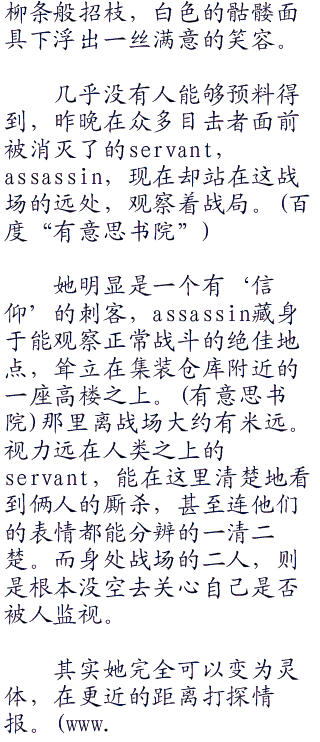 柳条般招枝，白色的骷髅面
具下浮出一丝满意的笑容。
几乎没有人能够预料得
到，昨晚在众多目击者面前
被消灭了的servant，
assassin，现在却站在这战
场的远处，观察着战局。(百
度“有意思书院”)
她明显是一个有‘信
仰’的刺客，assassin藏身
于能观察正常战斗的绝佳地
点，耸立在集装仓库附近的
一座高楼之上。(有意思书
院)那里离战场大约有米远。
视力远在人类之上的
servant，能在这里清楚地看
到俩人的厮杀，甚至连他们
的表情都能分辨的一清二
楚。而身处战场的二人，则
是根本没空去关心自己是否
被人监视。
其实她完全可以变为灵
体，在更近的距离打探情
报。(www.